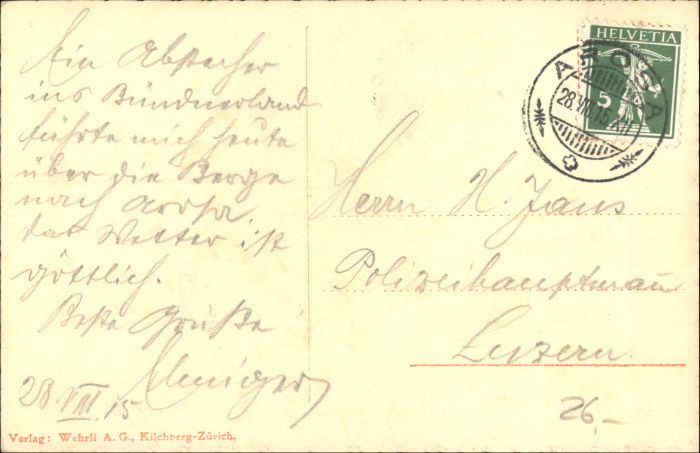 Ein Abstecher
ins Bündnerland
führte mich heute
über die Berge
nach Arosa,
das Wetter ist
göttlich.
Beste Grüße
28.VIII.15
Verlag: Wehrli A. G., Kilchberg-Zürich.
HELVETIA
5
AROSA
28.VIII.15.XII
Herrn H. Jans
Polizeihauptmann
Luzern.
26,-